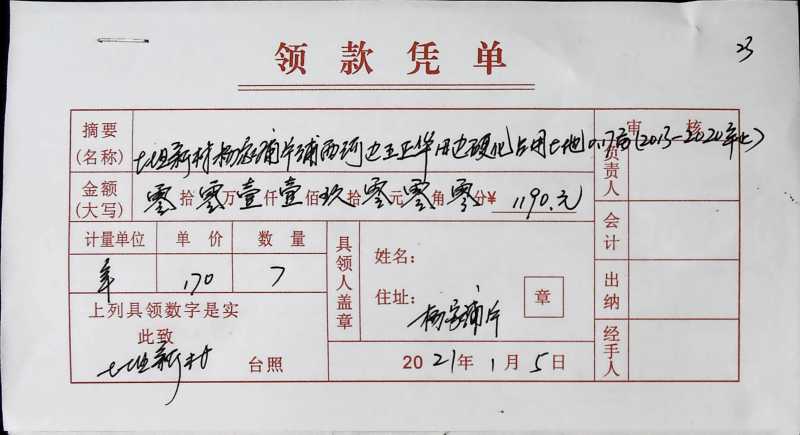 23
领款凭单
摘要(名称) 七组新村杨家浦片浦西河边王正华田边硬化占用土地0.17亩(2013-2020年止)
审核
金额(大写) 零拾零万壹仟壹佰玖拾零元零角零分¥ 1190.元
负责人
计量单位 单价 数量
年 170 7
上列具领数字是实
此致
七组新村 台照
具领人盖章
姓名:
住址: 杨家浦片
章
2021年1月5日
会计
出纳
经手人